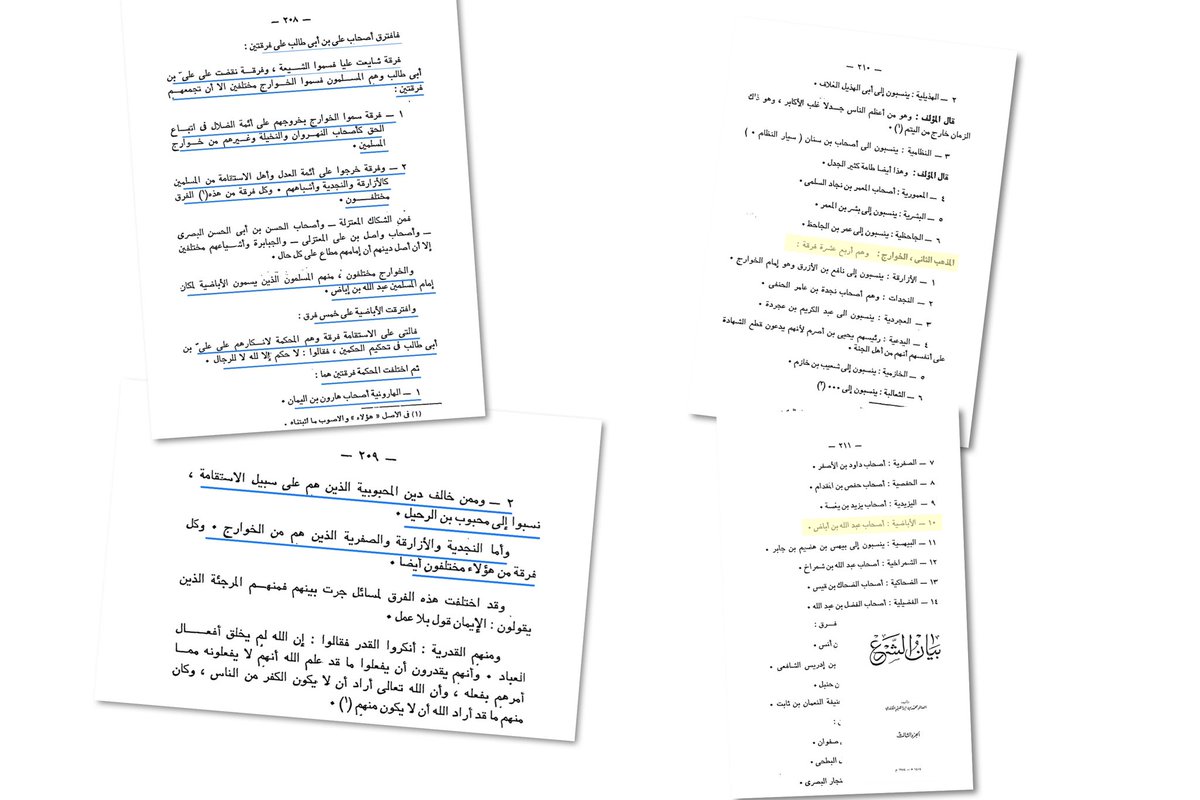 — ٢٠٨ —
فافترق أصحاب على بن أبى طالب على فرقتين :
فرقة شايعت عليا فسموا الشـيعة ، وفرقـة نقضت على علىّ بن
أبى طالب وهم المسلمون فسموا الخـوارج مختلفين الا أن تجمعهـم
فرقتين :
١ — فرقة سموا الخوارج بخروجهم على أئمة الضلال فى اتبـاع
الحق كأصحاب النهـروان والنخيلة وغيـرهم من خـوارج
المسلمين •
٢ — وفرقة خرجوا على أئمة العدل وأهل الاستقامة من المسلمين
كالأزارقة والنجدية وأشباههم • وكل فرقة من هذه(١) الفرق
مختلفـون •
فمن الشكاك المعتزلة — وأصحاب الحسن بن أبى الحسن البصرى
— وأصحاب واصل بن على المعتزلى — والجبابرة وأشياعهم مختلفين
إلا أن أصل دينهم أن إمامهم مطاع على كل حال •
والخوارج مختلفون ، منهم المسلمون الذين يسمون الأباضية لمكان
إمام المسلمين عبد الله بن إباض •
وافترقت الأباضية على خمس فرق :
فالتى على الاستقامة فرقة وهم المحكمة لانـكارهم على علىّ بن
أبى طالب فى تحكيم الحكمين ، فقالوا : لا حكم إلا لله لا للرجال •
ثم اختلفت المحكمة فرقتين هما :
١ — الهارونية أصحاب هارون بن اليمان •
(١) فى الأصل « هؤلاء » والأصوب ما أثبتناه .
— ٢٠٩ —
٢ — وممن خالف دين المحبوبية الذين هم على سبيل الاستقامة ،
نسبوا إلى محبوب بن الرحيل •
وأما النجدية والأزارقة والصفرية الذين هم من الخوارج • وكل
فرقة من هؤلاء مختلفون أيضا •
وقد اختلفت هذه الفرق لمسائل جرت بينهم فمنهـم المرجئة الذين
يقولون : الإيمان قول بلا عمل •
ومنهم القدرية : أنكروا القدر فقالوا : إن الله لم يخلق أفعـال
العباد • وأنهم يقدرون أن يفعلوا ما قد علم الله أنهم لا يفعلونه ممـا
أمرهم بفعله ، وأن الله تعالى أراد أن لا يكون الكفر من الناس ، وكان
منهم ما قد أراد الله أن لا يكون منهم (١) •
— ٢١٠ —
٢ — الهذيلية : ينسبون إلى أبى الهذيل العلاف •
قال المؤلف : وهو من أعظم الناس جـدلا غلب الأكابر ، وهو ذاك
الزمان خارج من اليتم (١) •
٣ — النظامية : ينسبون الى أصحاب بن سنان ( سيار النظام • )
قال المؤلف : وهذا أيضا طامة كثير الجدل •
٤ — المعمورية : أصحاب المعمر بن نجاد السلمى •
٥ — البشرية : ينسبون إلى بشر بن المعمر •
٦ — الجاحظية : ينسبون إلى عمر بن الجاحظ •
المذهب الثانى ، الخوارج : وهم أربع عشرة فرقة :
١ — الأزارقة : ينسبون إلى نافع بن الأزرق وهو إمام الخوارج •
٢ — النجدات : وهم أصحاب نجدة بن عامر الحنفى •
٣ — العجردية : ينسبون الى عبد الكريم بن عجردة •
٤ — البدعية : رئيسهم يحيى بن أصرم لأنهم يدعون قطع الشهادة
على أنفسهم أنهم من أهل الجنة •
٥ — الخازمية : ينسبون إلى شعيب بن خازم •
٦ — الثعالبة : ينسبون إلى ••• (٢)
— ٢١١ —
٧ — الصفرية : أصحاب داود بن الأصفر •
٨ — الحفصية : أصحاب حفص بن المقدام •
٩ — اليزيدية : أصحاب يزيد بن
١٠ — الأباضية : أصحاب عبد الله بن أباض •
١١ — البيهسية : ينسبون إلى بيهس بن هضيم بن جابر •
١٢ — الشمراخية : أصحاب عبد الله بن شمراخ •
١٣ — الضحاكية : أصحاب الضحاك بن قيس •
١٤ — الفضيلية : أصحاب الفضل بن عبد الله •
فـرق :
ن أنس •
بن إدريس الشافعى •
ن حنبل •
نيفة النعمان بن ثابت •
:
صفوان •
البطحى •
نجار البصرى •
بيان الشرع
الجزء الثالث